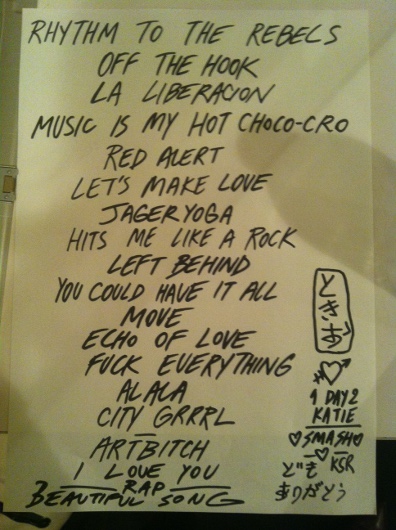 RHYTHM TO THE REBELS
OFF THE HOOK
LA LIBERACION
MUSIC IS MY HOT CHOCO-CRO
RED ALERT
LET'S MAKE LOVE
JAGERYOGA
HITS ME LIKE A ROCK
LEFT BEHIND
YOU COULD HAVE IT ALL
MOVE
ECHO OF LOVE
FUCK EVERYTHING
ALALA
CITY GRRRL
ARTBITCH
I LOVE YOU
RAP
BEAUTIFUL SONG
1 DAY 2
KATIE
SMASH
KSR
ありがとう